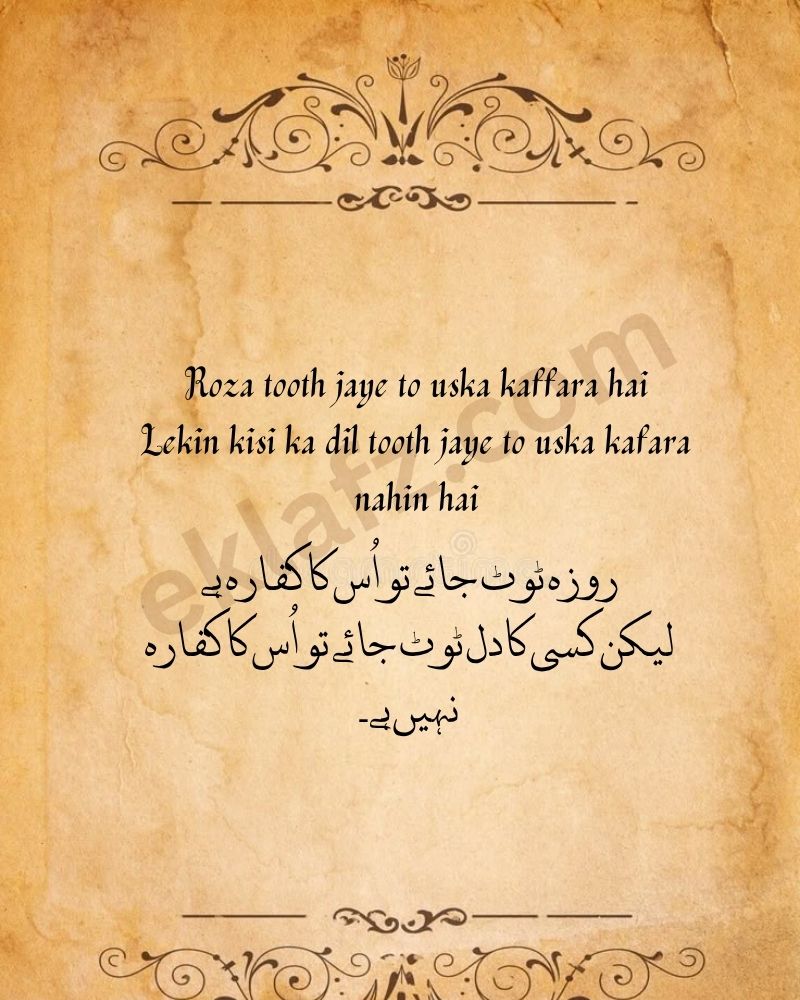 Roza tooth jaye to uska kaffara hai
Lekin kisi ka dil tooth jaye to uska kafara
nahin hai
روزہ ٹوٹ جائے تو اُس کا کفارہ ہے
لیکن کسی کا دل ٹوٹ جائے تو اُس کا کفارہ
نہیں ہے۔
eklafz.com